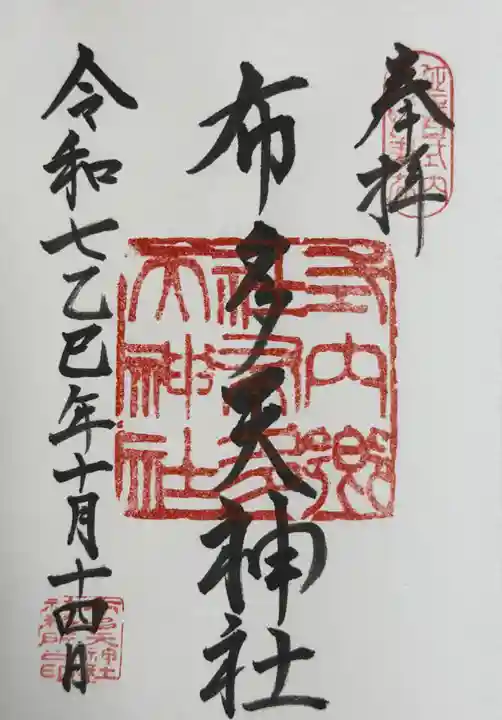 奉拝
延喜式内
布多天神社
式内郷
社布多
天神社
令和七乙巳年十月十四日
布多天神社
社務所之印